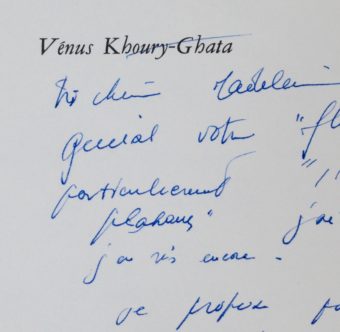 Vénus Khoury-Ghata
Très chère Madelei
Génial votre "
particulièrement "
platanes" j'ai
j'en ris encore.
je propose